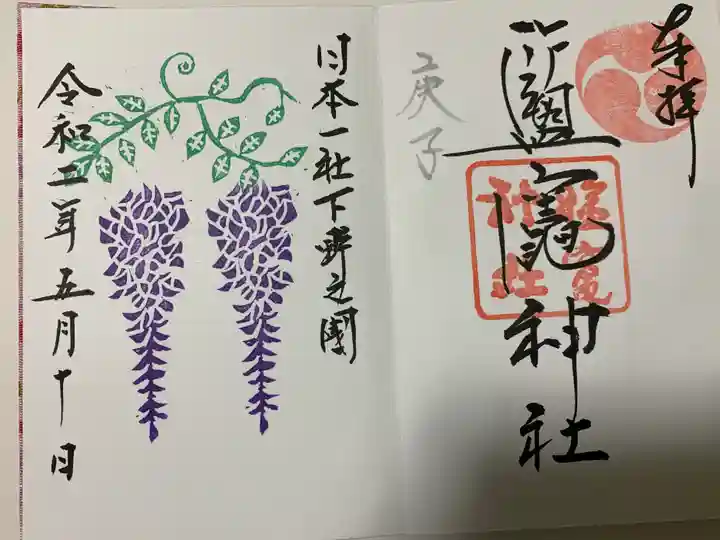 奉拝
鹽竈神社
神社
庚子
日本一社下野之國
令和二年五月十日